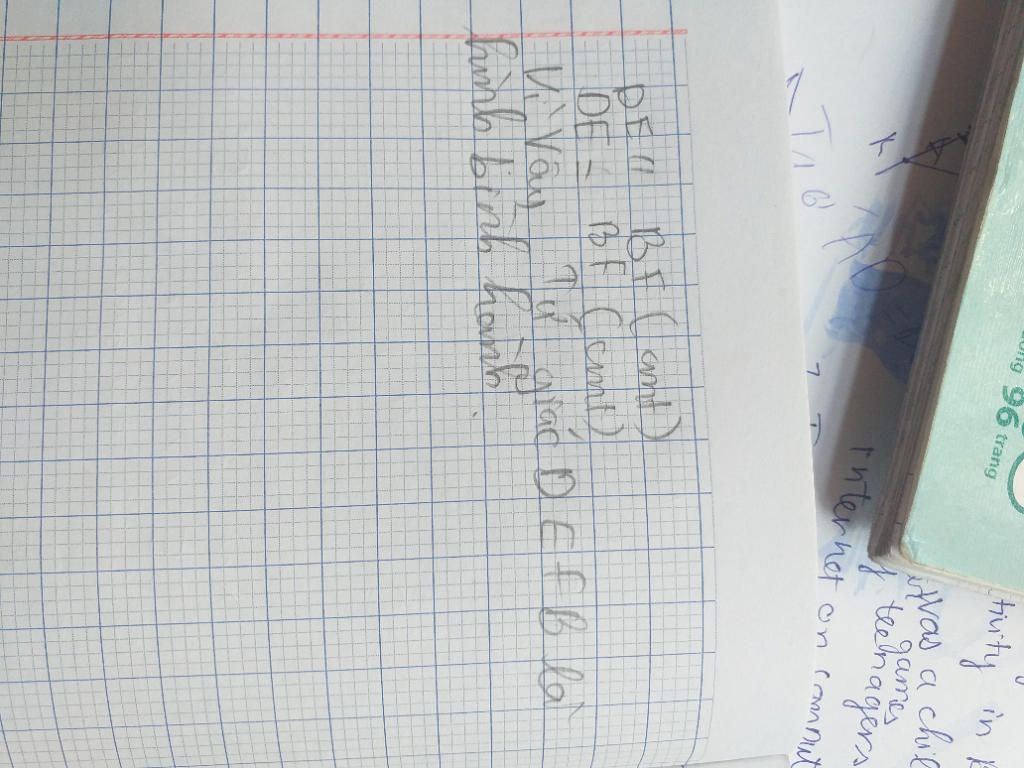 DE // BF (cmt)
DE = BF (cmt)
Vì Vậy Tứ giác D E F B là
hình bình hành.
96 trang
Internet on commut
games
teenagers
was a chil
tivity in